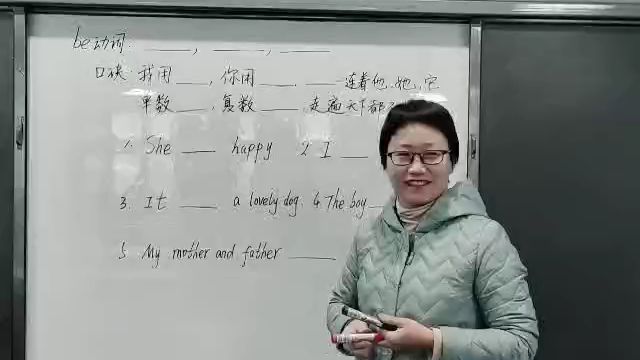 be动词: ____, ____, ____
口诀: 我用____, 你用____, ____连着他、她、它
单数____, 复数____, 走遍天下都
1. She ____ happy 2 I ____
3. It ____ a lovely dog. 4. The boy ____
5 My mother and father ____